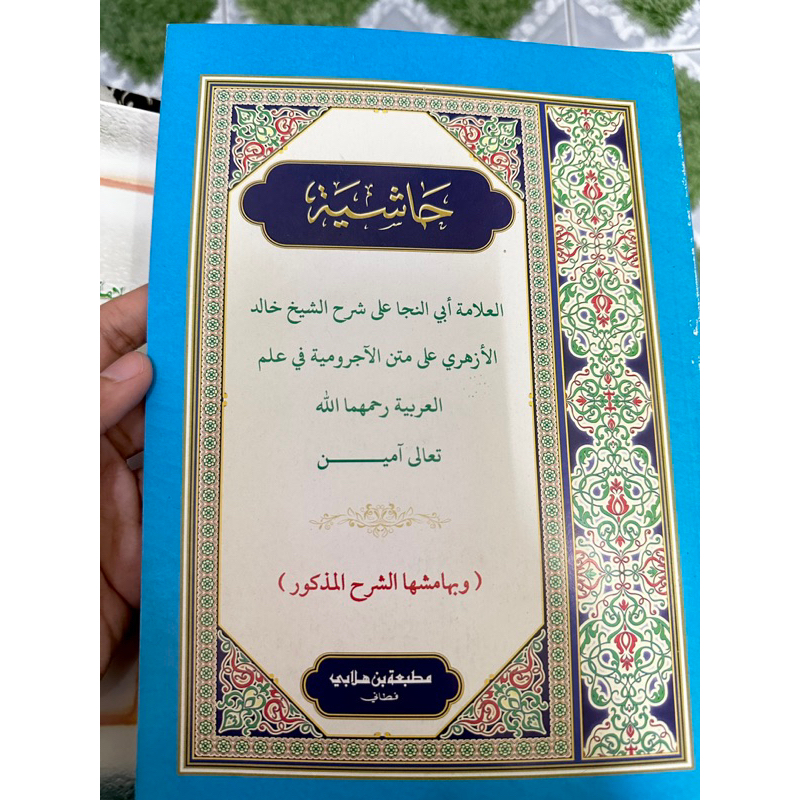 حاشية
العلامة أبي النجا على شرح الشيخ خالد
الأزهري على متن الآجرومية في علم
العربية رحمهما الله
تعالى آميـــــــن
(وبهامشها الشرح المذكور)
مطبعة بن هلابي
فطاني